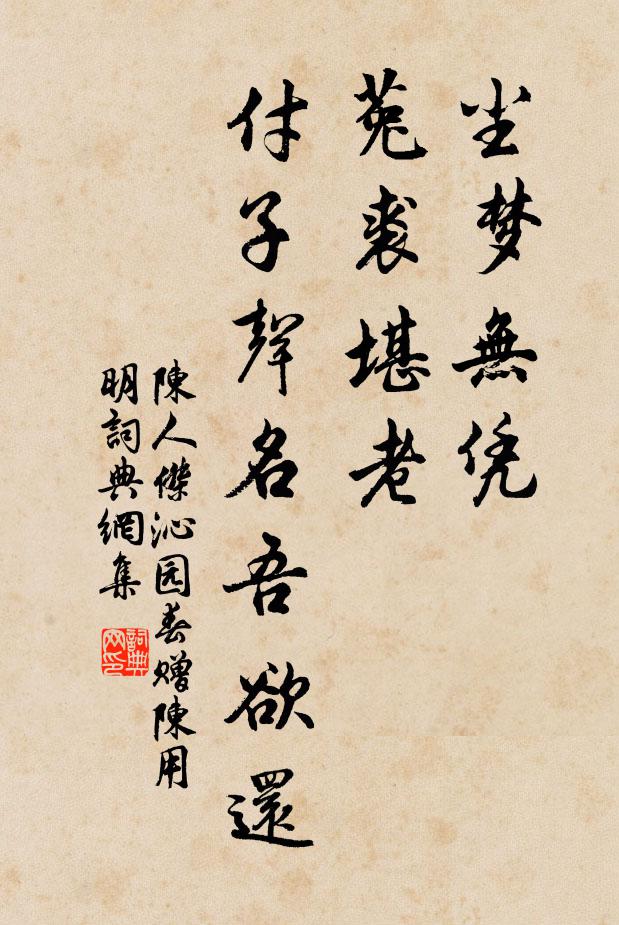 尘梦無凭
菟裘堪老
付子聲名吾欲還
陳人傑沁园春赠陳用
明詞典網集
詞典网印